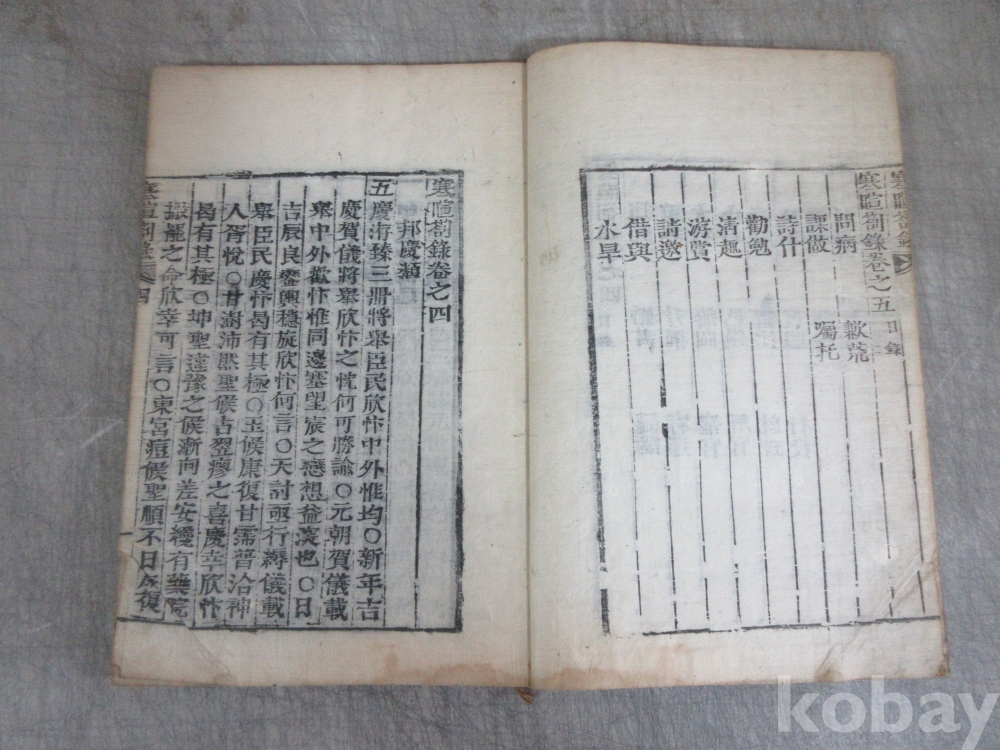 寒暄劄錄卷之五目錄
問病 歉荒
課做 囑托
詩什
勸勉
清趣
游賞
請邀
借與
水旱
寒暄劄錄卷之四
邦慶類
五慶湊臻三冊將舉臣民欣忭中外惟均〇新年吉
慶賀儀將舉欣忭之忱何可勝諭〇元朝賀儀載
舉中外歡忭惟同邊塞望宸之戀想益深也〇日
吉辰良鑾輿穩旋欣忭何言〇天討亟行縟儀載
舉臣民慶忭曷有其極〇玉候康復甘霈普洽神
人胥悅〇甘澍沛然聖候占翌瘳之喜慶幸欣忭
曷有其極〇坤聖違豫之候漸向差安纔有藥院
撤罷之命欣幸可言〇東宮痘候聖順不日康復
kobay